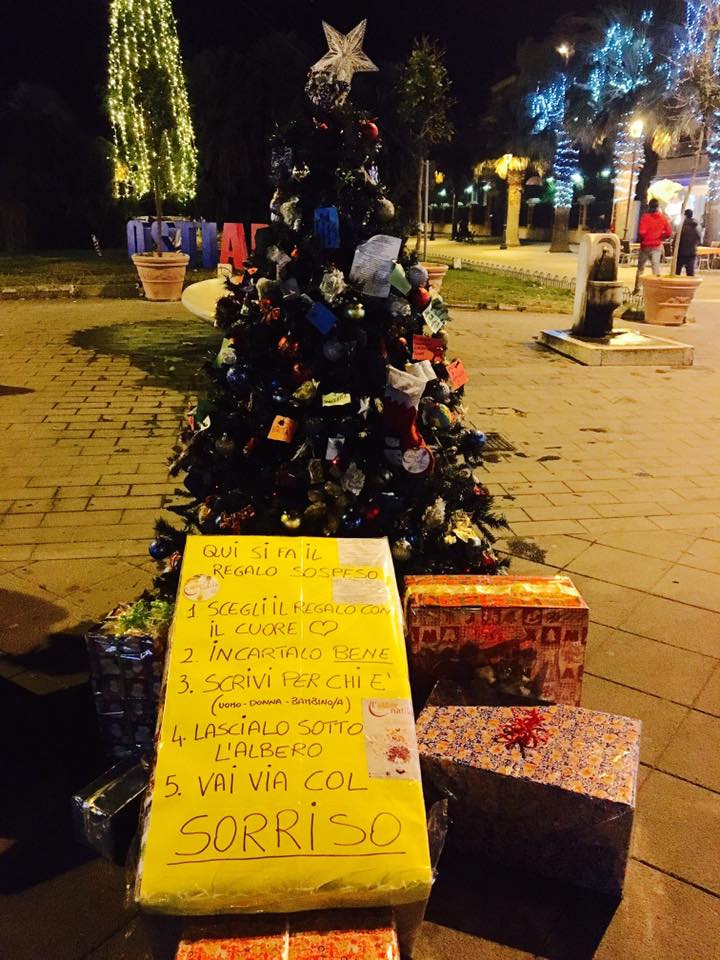 OSTIA
QUI SI FA IL
REGALO SOSPESO
1 SCEGLI IL REGALO CON
IL CUORE ♡
2. INCARTALO BENE
3. SCRIVI PER CHI E'
(UOMO - DONNA - BAMBINO/A)
4. LASCIALO SOTTO
L'ALBERO
5. VAI VIA COL
SORRISO